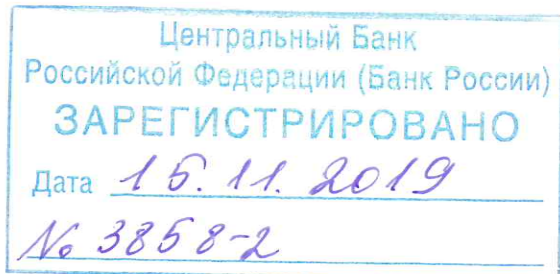 Центральный Банк
Российской Федерации (Банк России)
ЗАРЕГИСТРИРОВАНО
Дата 15.11.2019
№ 3858-2